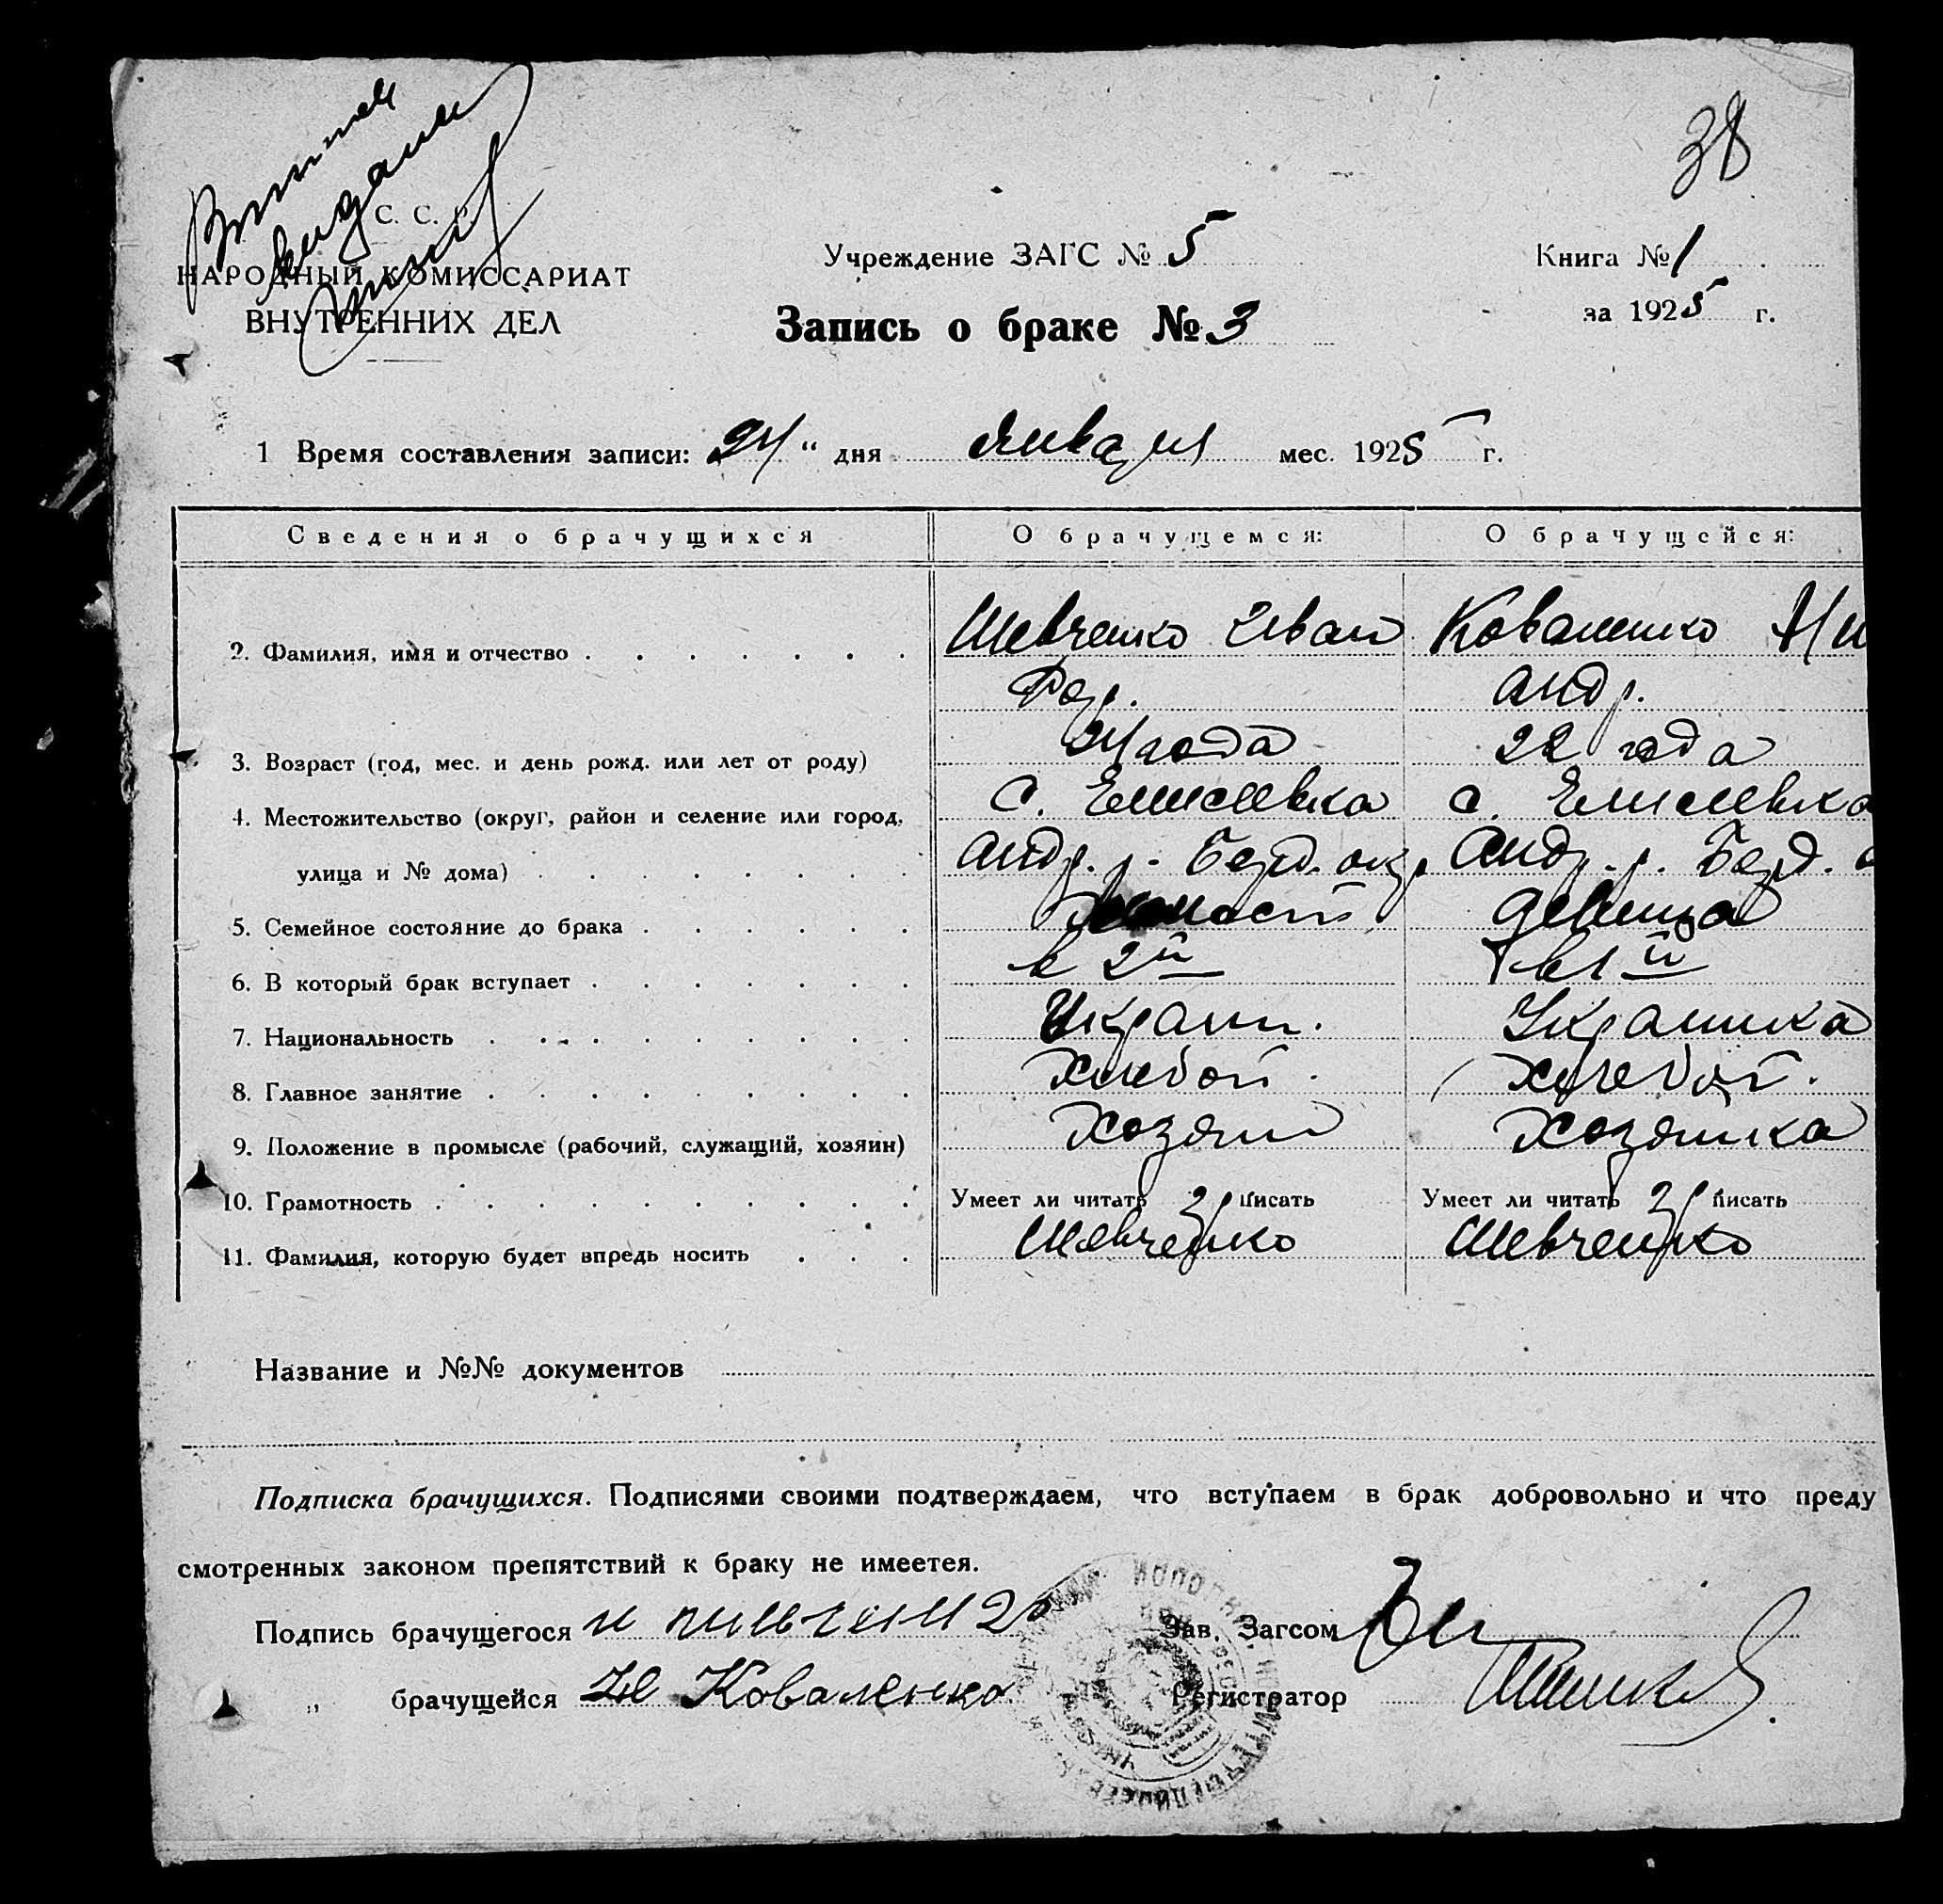 38
С. С.
НАРОДНЫЙ КОМИССАРИАТ
ВНУТРЕННИХ ДЕЛ
Учреждение ЗАГС № 5
Книга № 1
Запись о браке № 3
за 1925 г.
1 Время составления записи: 24 " дня января мес. 1925 г.
Сведения о брачущихся О брачущемся: О брачущейся:
2. Фамилия, имя и отчество Шевченко Иван Коваленко
андр.
3. Возраст (год, мес. и день рожд. или лет от роду) 24 года 22 года
4. Местожительство (округ, район и селение или город, с. Елисеевка с. Елисеевка
улица и № дома) андр. р. Берд. окр Андр. р. Берд.
5. Семейное состояние до брака девица
6. В который брак вступает в 2й в 1й
7. Национальность Украин. Украинка
8. Главное занятие Хлебоп. Хлебоп.
9. Положение в промысле (рабочий, служащий, хозяин) Хозяин Хозяйка
10. Грамотность Умеет ли читать гр писать Умеет ли читать гр писать
11. Фамилия, которую будет впредь носить Шевченко Шевченко
Название и №№ документов
Подписка брачущихся. Подписями своими подтверждаем, что вступаем в брак добровольно и что преду
смотренных законом препятствий к браку не имеетея.
Подпись брачущегося Зав. Загсом
„ брачущейся Коваленко Регистратор